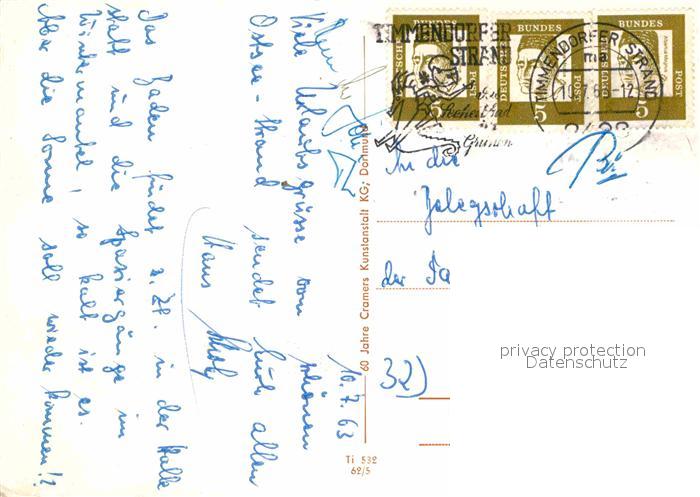 10.7.63
Viele Urlaubsgrüsse vom schönen
Ostsee-Strand sendet Euch allen
Hans
Das Baden findet z. Zt. in der Halle
statt und die Spaziergänge im
Wintermantel, so kalt ist es.
Aber die Sonne soll wieder kommen!?
60 Jahre Cramers Kunstanstalt KG; Dortmund
Ti 532
62/5
DEUTSCHE BUNDESPOST
5
DEUTSCHE BUNDESPOST
5
DEUTSCHE BUNDESPOST
5
TIMMENDORFER
STRAND
das
Seeheilbad
im
Grünen
TIMMENDORFER STRAND
An die
Belegschaft
der Fa
32)
privacy protection
Datenschutz